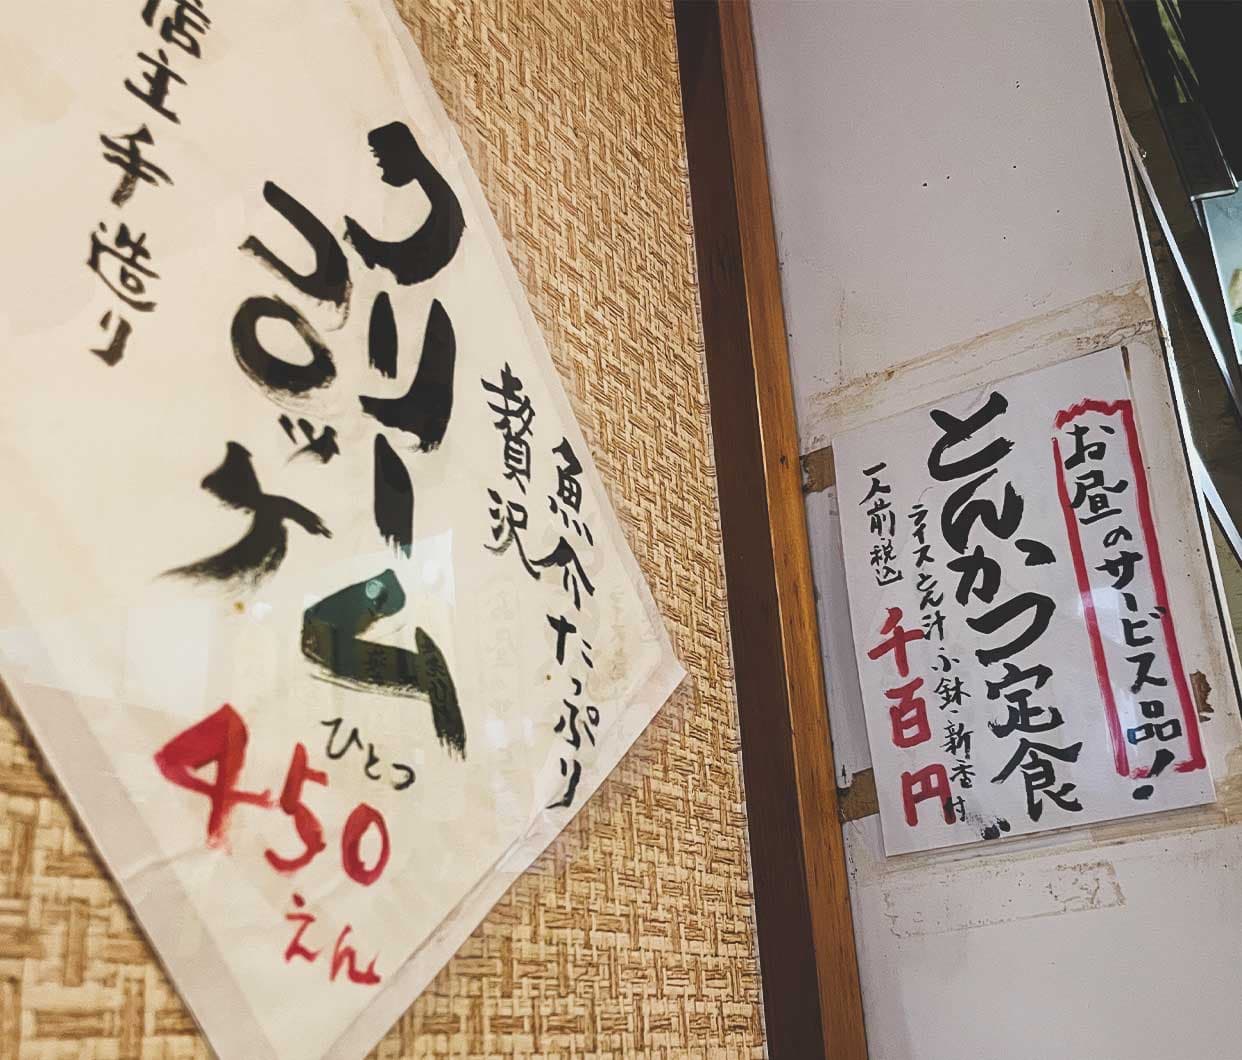 魚介たっぷり
贅沢
クリーム
コロッケ
店主手造り
ひとつ
450
えん
お昼のサービス品!
とんかつ定食
ライスとん汁小鉢新香付
一人前税込
千百円